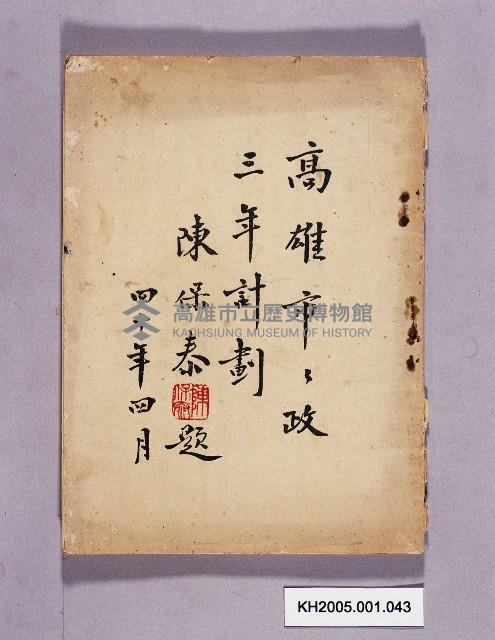 高雄市〻政
三年計劃
陳保泰題
四十年四月
陳保泰
高雄市立歷史博物館
KAOHSIUNG MUSEUM OF HISTORY
KH2005.001.043